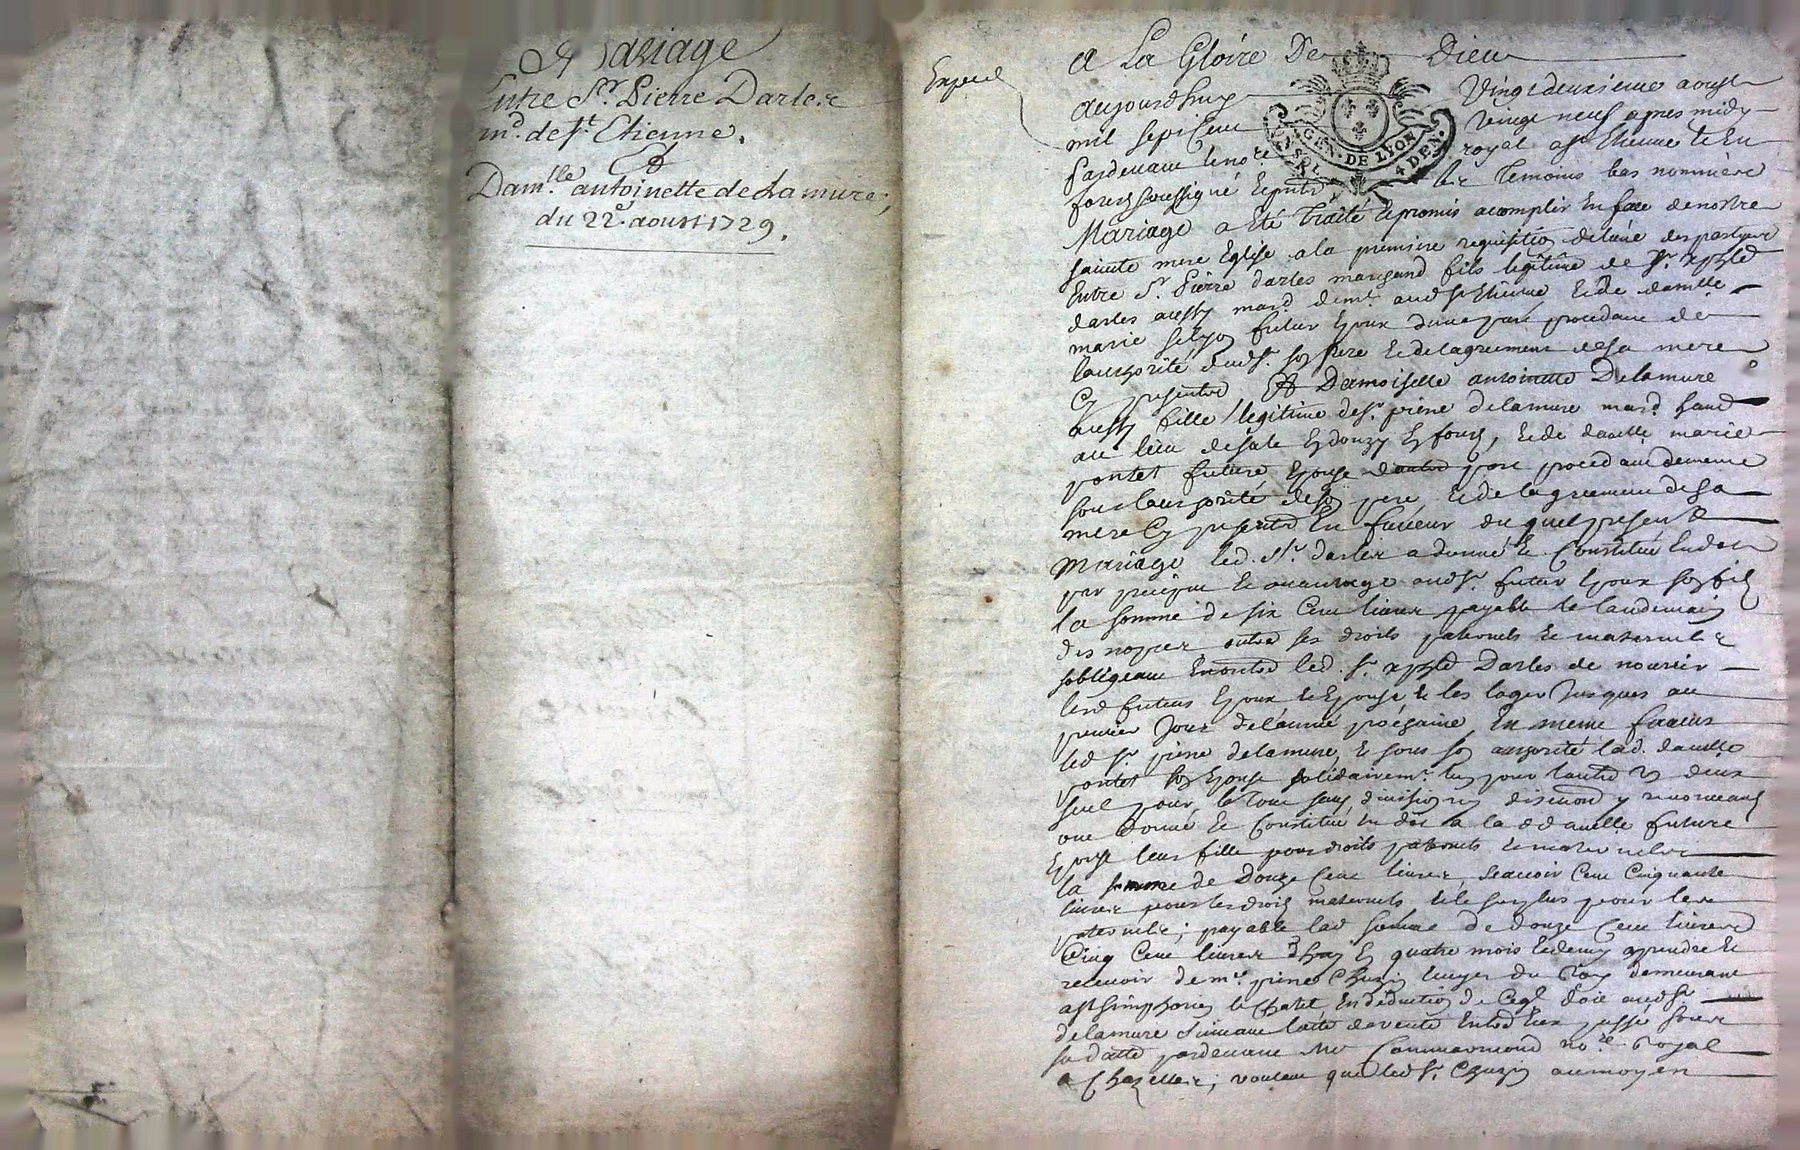 Mariage
Entre Sr. Pierre Darles
md. de St. Etienne.
Et
Damlle antoinette de Lamure,
du 22e. aoust 1729.
Expedié
A La Gloire De Dieu
aujourdhuy vingt deuxieme aoust
mil sept Cent vingt neuf apres midy
pardevant le nore royal a St Etienne en
forest soussigné et presents les temoins bas nommés
GEN. DE LYON
4 DEN.
Mariage a eté traité et promis acomplir en face de nostre
sainte mere Eglise a la premiere requisition de lune des partyes
Entre Sr. Pierre darles marchand fils legitime de Sr.
darles aussy mard. demt. aud St Etienne et de damlle
marie futur Epoux dune part procedant de
lauthorité dud Sr. son pere et de lagreement de sa mere
Cy presents Et Demoiselle antoinette Delamure
aussy fille legitime de Sr. pierre delamure mard.
au lieu de en forest, et de damlle marie
pontet future Epouse dautre part procedant de meme
sous lauthorité de son pere et de lagreement de sa
mere Cy presents En faveur du quel present
Mariage led. Sr. darles a donné et Constitué En dot
par preciput et avantage aud Sr. futur Epoux son fils
la somme de six Cent livres payable le landemain
des nopces outre ses droits paternels et maternels
sobligeant En outre led. Sr. Darles de nourrir
lesd futurs Epoux et Epouse et les loger jusques au
premier jour de lannée prochaine, En meme faveur
led Sr. pierre delamure, et sous son authorité lad. damlle
pontet son Epouse solidairemt. lun pour lautre un deux
seul pour le tout sans division ny discution y renonceans
ont donné et Constitué En dot a lad damlle future
Epouse leur fille pour droits paternels et maternels
la somme de Douze Cent livres, scavoir Cent Cinquante
livres pour les droits maternels et le surplus pour les
paternels; payable lad somme de douze Cent livres
Cinq Cent livres dhuy En quatre mois a prendre et
recevoir de mr. pierre du Roy demeurant
a St Simphorien le Chatel En deduction de doit aud Sr.
delamure suivant lacte de vente Entre Eux passé sous
sa datte pardevant Me nore. Royal
a Chazelles; voulant que led Sr. au moyen